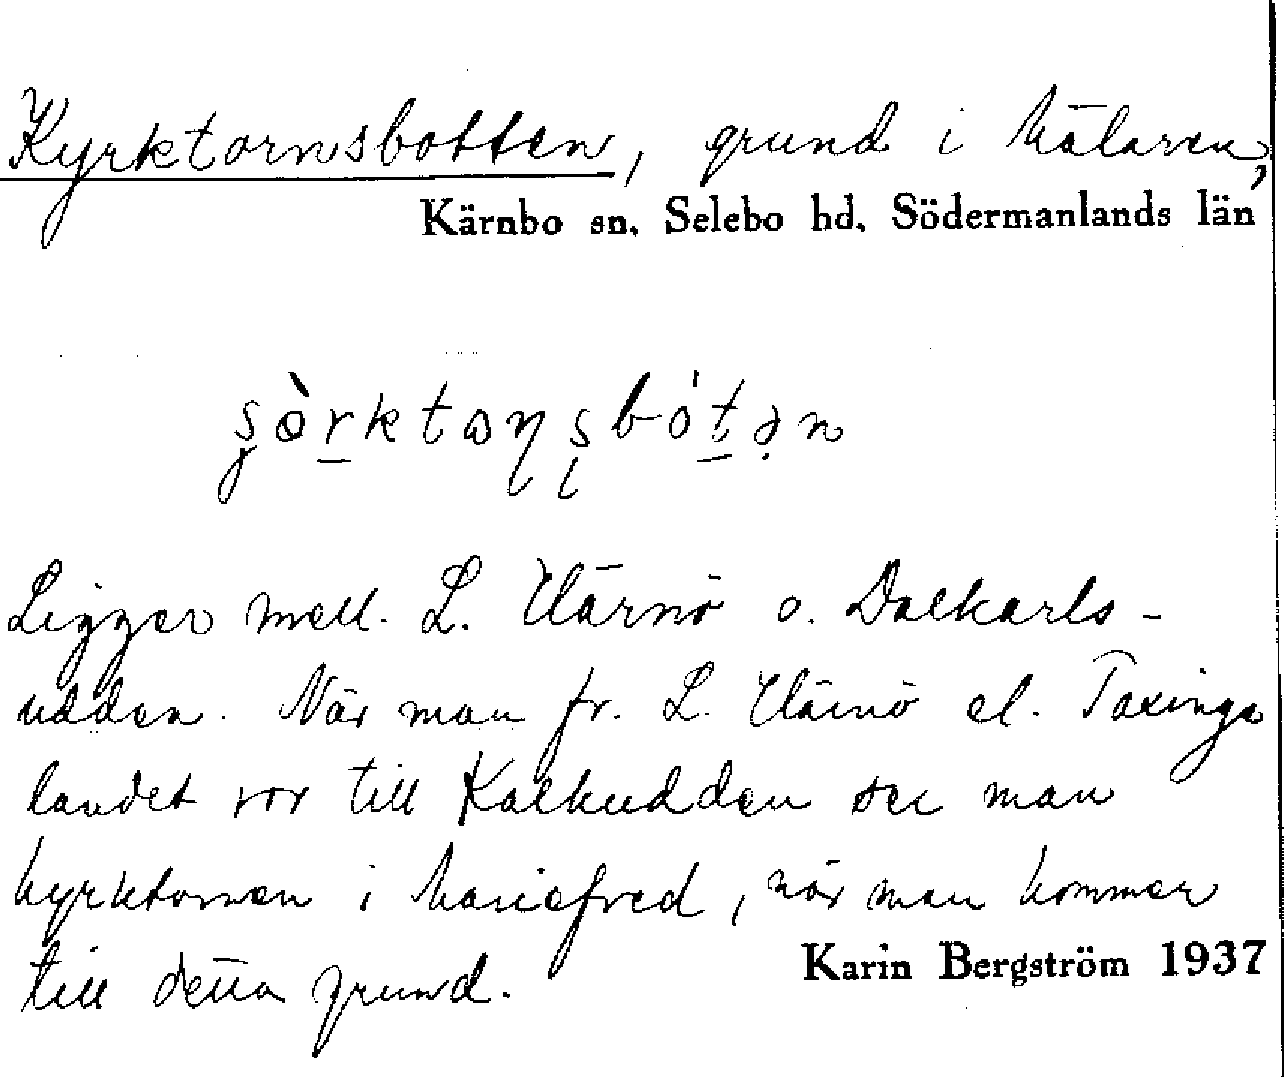 Kyrktornsbotten, grund i Mälaren,
Kärnbo sn, Selebo hd, Södermanlands län
Ligger mell. L. Härnö o. Dalkarls-
udden. När man fr. L. Härnö el. Taxinge
landet ror till Kalkudden ser man
kyrktornen i Mariefred, när man kommer
till detta grund.
Karin Bergström 1937